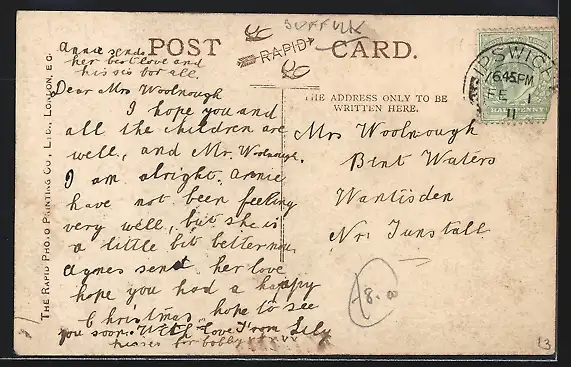 SUFFOLK
POST CARD.
RAPID
Annie sends
her best love and
kisses for all.
Dear Mrs Woolnough
I hope you and
all the children are
well, and Mr. Woolnough.
I am alright. Annie
have not been feeling
very well, but she is
a little bit better now
Agnes send her love
hope you had a happy
Christmas hope to see
you soon. With love from Lily
kisses for bobby x x x v v
THE ADDRESS ONLY TO BE
WRITTEN HERE.
Mrs Woolnough
Bent Waters
Wantisden
Nr. Tunstall
IPSWICH
6.45PM
FE 1
11
HALFPENNY
THE RAPID PHOTO PRINTING CO., LTD., LONDON, E.C.
8.00
13